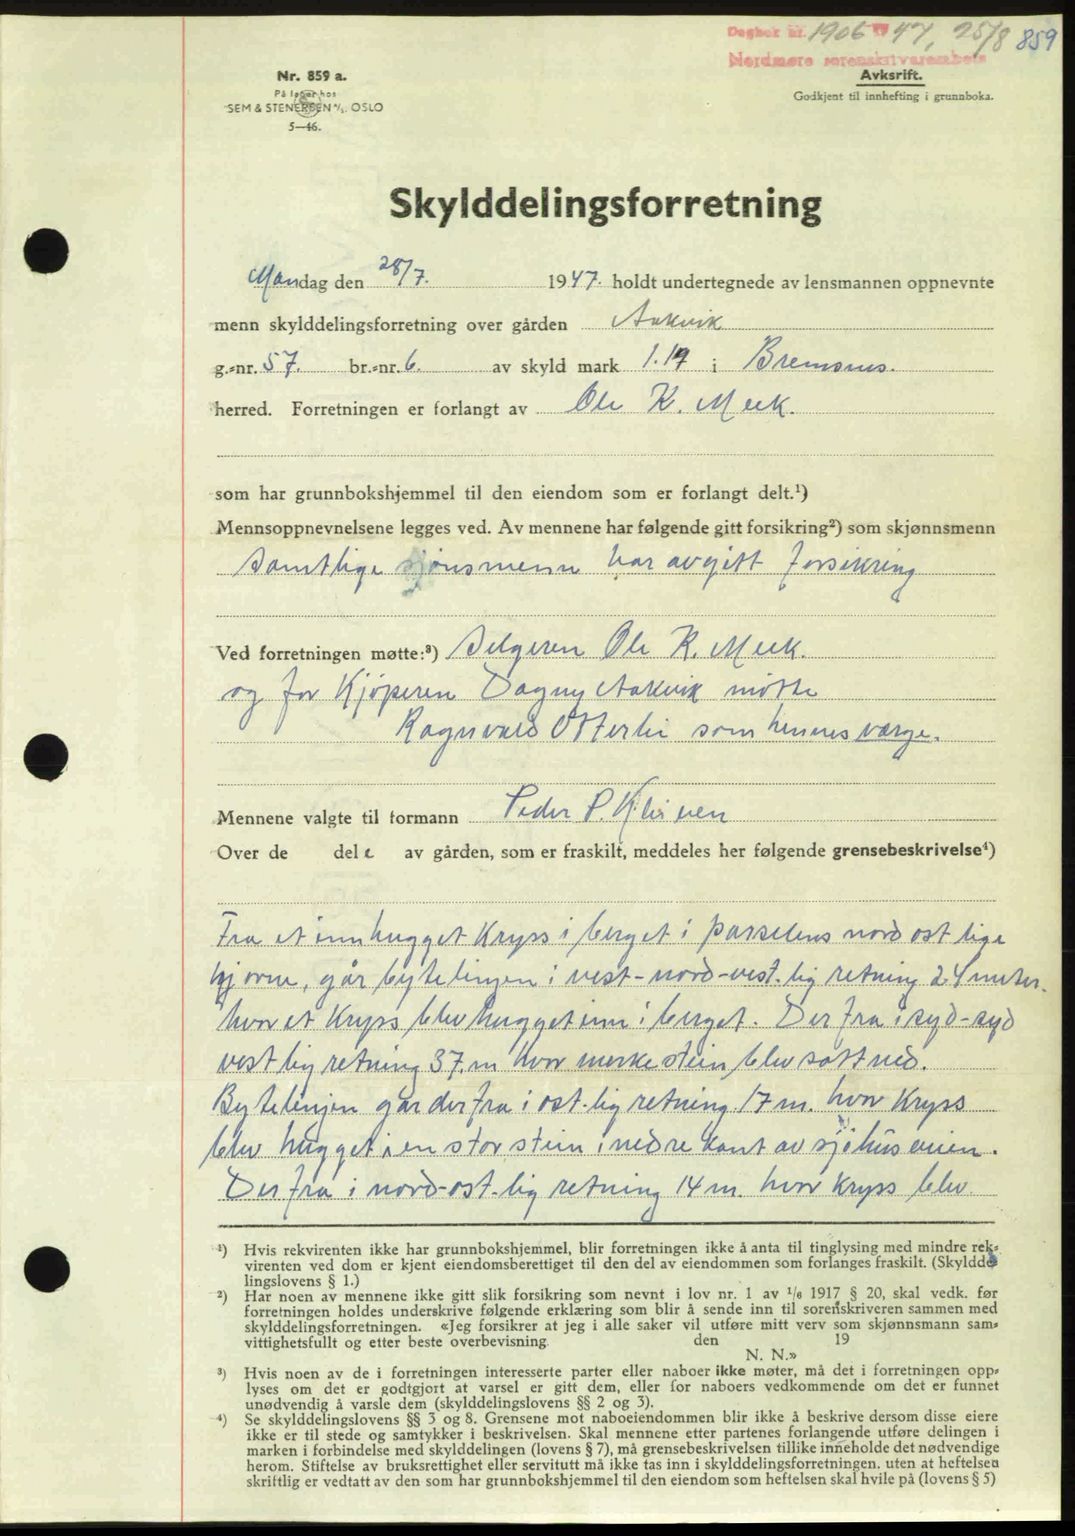 Dagbok nr. 1906 47, 25/8 859
Nordmøre sorenskriverembete
Nr. 859 a.
På lager hos
SEM & STENERSEN A/S, OSLO
5—46.
Avskrift.
Godkjent til innhefting i grunnboka.
Skylddelingsforretning
Mandag den 28/7. 1947. holdt undertegnede av lensmannen oppnevnte
menn skylddelingsforretning over gården Aakvik
g.-nr. 57. br.-nr. 6. av skyld mark 1.19 i Bremsnes.
herred. Forretningen er forlangt av Ole K. Meek.
som har grunnbokshjemmel til den eiendom som er forlangt delt.¹)
Mennsoppnevnelsene legges ved. Av mennene har følgende gitt forsikring²) som skjønnsmenn
Samtlige sjønsmenn har avgitt forsikring
Ved forretningen møtte:³) Selgeren Ole K. Meek.
og for Kjøperen Dagny Aakvik møtte
Ragnvald Otterlei som hennes værge.
Mennene valgte til formann Peder P. Kleiven
Over de del e av gården, som er fraskilt, meddeles her følgende grensebeskrivelse⁴)
Fra et innhugget Kryss i berget i parselens nordostlige
hjørne, går bytelinjen i vest-nord-vest.lig retning 24 meter.
hvor et Kryss blev hugget inn i berget. Derfra i syd-syd
vestlig retning 37 m hvor merkestein blev satt ned.
Bytelinjen går derfra i ost-lig retning 17 m. hvor Kryss
blev hugget i en stor stein i nedre kant av sjøhusveien.
Derfra i nord-ost-lig retning 14 m. hvor kryss blev
¹) Hvis rekvirenten ikke har grunnbokshjemmel, blir forretningen ikke å anta til tinglysing med mindre rek-
virenten ved dom er kjent eiendomsberettiget til den del av eiendommen som forlanges fraskilt. (Skyldde-
lingslovens § 1.)
²) Har noen av mennene ikke gitt slik forsikring som nevnt i lov nr. 1 av 1/6 1917 § 20, skal vedk. før
forretningen holdes underskrive følgende erklæring som blir å sende inn til sorenskriveren sammen med
skylddelingsforretningen. «Jeg forsikrer at jeg i alle saker vil utføre mitt verv som skjønnsmann sam-
vittighetsfullt og etter beste overbevisning. den 19
N. N.»
³) Hvis noen av de i forretningen interesserte parter eller naboer ikke møter, må det i forretningen opp-
lyses om det er godtgjort at varsel er gitt dem, eller for naboers vedkommende om det er funnet
unødvendig å varsle dem (skylddelingslovens §§ 2 og 3).
⁴) Se skylddelingslovens §§ 3 og 8. Grensene mot naboeiendommen blir ikke å beskrive dersom disse eiere
ikke er til stede og samtykker i beskrivelsen. Skal mennene etter partenes forlangende utføre delingen i
marken i forbindelse med skylddelingen (lovens § 7), må grensebeskrivelsen tillike inneholde det nødvendige
herom. Stiftelse av bruksrettighet eller servitutt må ikke tas inn i skylddelingsforretningen. uten at heftelsen
skriftlig er vedtatt av den som har grunnbokshjemmel til den eiendom som heftelsen skal hvile på (lovens § 5)